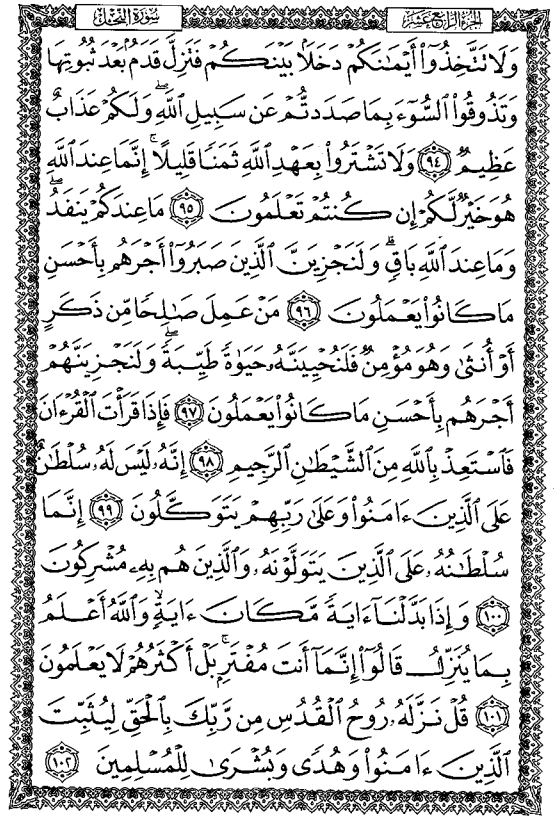 الجزء الرابع عشر
سورة النحل
وَلَا تَتَّخِذُوٓا۟ أَيْمَٰنَكُمْ دَخَلًۢا بَيْنَكُمْ فَتَزِلَّ قَدَمٌۢ بَعْدَ ثُبُوتِهَا
وَتَذُوقُوا۟ ٱلسُّوٓءَ بِمَا صَدَدتُّمْ عَن سَبِيلِ ٱللَّهِ ۖ وَلَكُمْ عَذَابٌ
عَظِيمٌ ﴿٩٤﴾ وَلَا تَشْتَرُوا۟ بِعَهْدِ ٱللَّهِ ثَمَنًا قَلِيلًا ۚ إِنَّمَا عِندَ ٱللَّهِ
هُوَ خَيْرٌ لَّكُمْ إِن كُنتُمْ تَعْلَمُونَ ﴿٩٥﴾ مَا عِندَكُمْ يَنفَدُ ۖ
وَمَا عِندَ ٱللَّهِ بَاقٍ ۗ وَلَنَجْزِيَنَّ ٱلَّذِينَ صَبَرُوٓا۟ أَجْرَهُم بِأَحْسَنِ
مَا كَانُوا۟ يَعْمَلُونَ ﴿٩٦﴾ مَنْ عَمِلَ صَٰلِحًا مِّن ذَكَرٍ
أَوْ أُنثَىٰ وَهُوَ مُؤْمِنٌ فَلَنُحْيِيَنَّهُۥ حَيَوٰةً طَيِّبَةً ۖ وَلَنَجْزِيَنَّهُمْ
أَجْرَهُم بِأَحْسَنِ مَا كَانُوا۟ يَعْمَلُونَ ﴿٩٧﴾ فَإِذَا قَرَأْتَ ٱلْقُرْءَانَ
فَٱسْتَعِذْ بِٱللَّهِ مِنَ ٱلشَّيْطَٰنِ ٱلرَّجِيمِ ﴿٩٨﴾ إِنَّهُۥ لَيْسَ لَهُۥ سُلْطَٰنٌ
عَلَى ٱلَّذِينَ ءَامَنُوا۟ وَعَلَىٰ رَبِّهِمْ يَتَوَكَّلُونَ ﴿٩٩﴾ إِنَّمَا
سُلْطَٰنُهُۥ عَلَى ٱلَّذِينَ يَتَوَلَّوْنَهُۥ وَٱلَّذِينَ هُم بِهِۦ مُشْرِكُونَ
﴿١٠٠﴾ وَإِذَا بَدَّلْنَآ ءَايَةً مَّكَانَ ءَايَةٍ ۙ وَٱللَّهُ أَعْلَمُ
بِمَا يُنَزِّلُ قَالُوٓا۟ إِنَّمَآ أَنتَ مُفْتَرٍۭ ۚ بَلْ أَكْثَرُهُمْ لَا يَعْلَمُونَ
﴿١٠١﴾ قُلْ نَزَّلَهُۥ رُوحُ ٱلْقُدُسِ مِن رَّبِّكَ بِٱلْحَقِّ لِيُثَبِّتَ
ٱلَّذِينَ ءَامَنُوا۟ وَهُدًى وَبُشْرَىٰ لِلْمُسْلِمِينَ ﴿١٠٢﴾